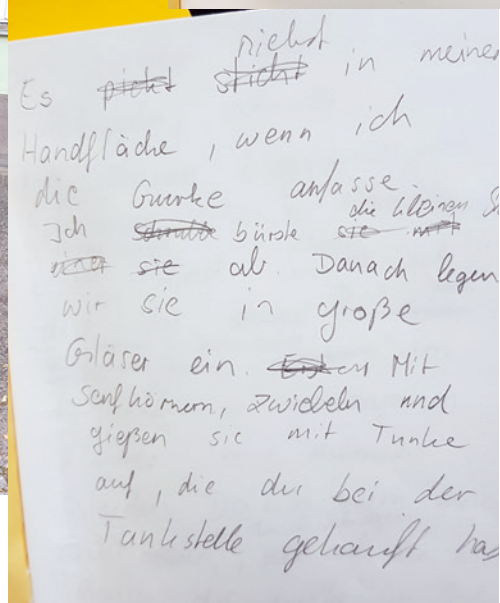 Es in meiner
Handfläche, wenn ich
die Gurke anfasse.
die kleinen
Ich bürste
ab. Danach legen
wir sie in große
Gläser ein. Mit
Senfkörnern, Zwiebeln und
gießen sie mit Tunke
auf, die du bei der
Tankstelle gekauft has